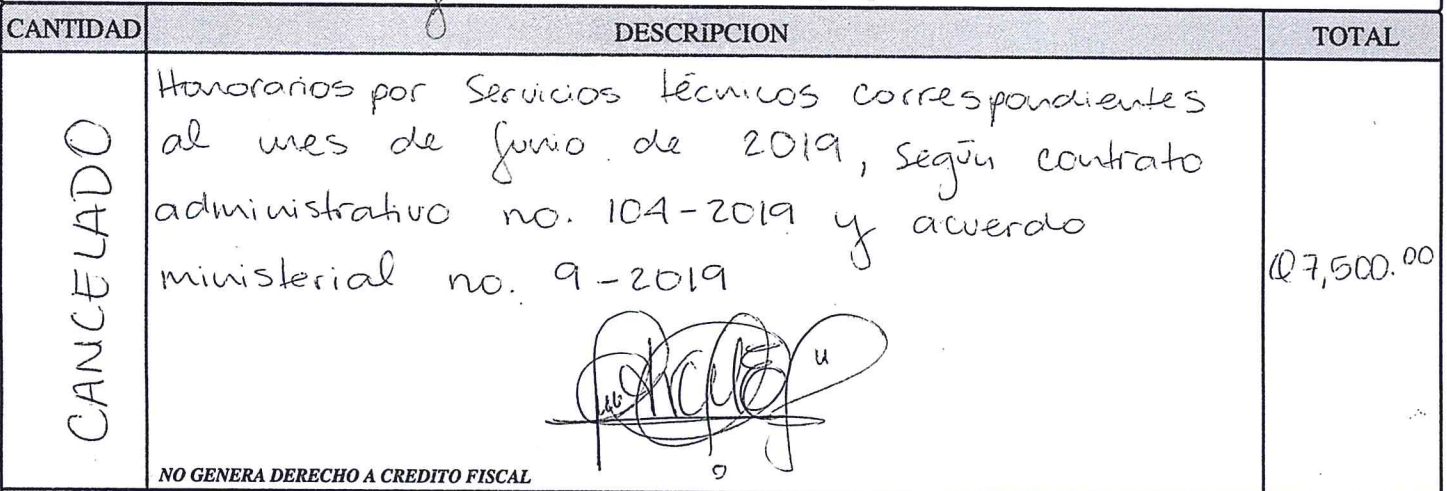 CANTIDAD DESCRIPCION TOTAL
CANCELADO
Honorarios por Servicios técnicos correspondientes
al mes de Junio de 2019, según contrato
administrativo no. 104-2019 y acuerdo
ministerial no. 9-2019
Q7,500.00
NO GENERA DERECHO A CREDITO FISCAL